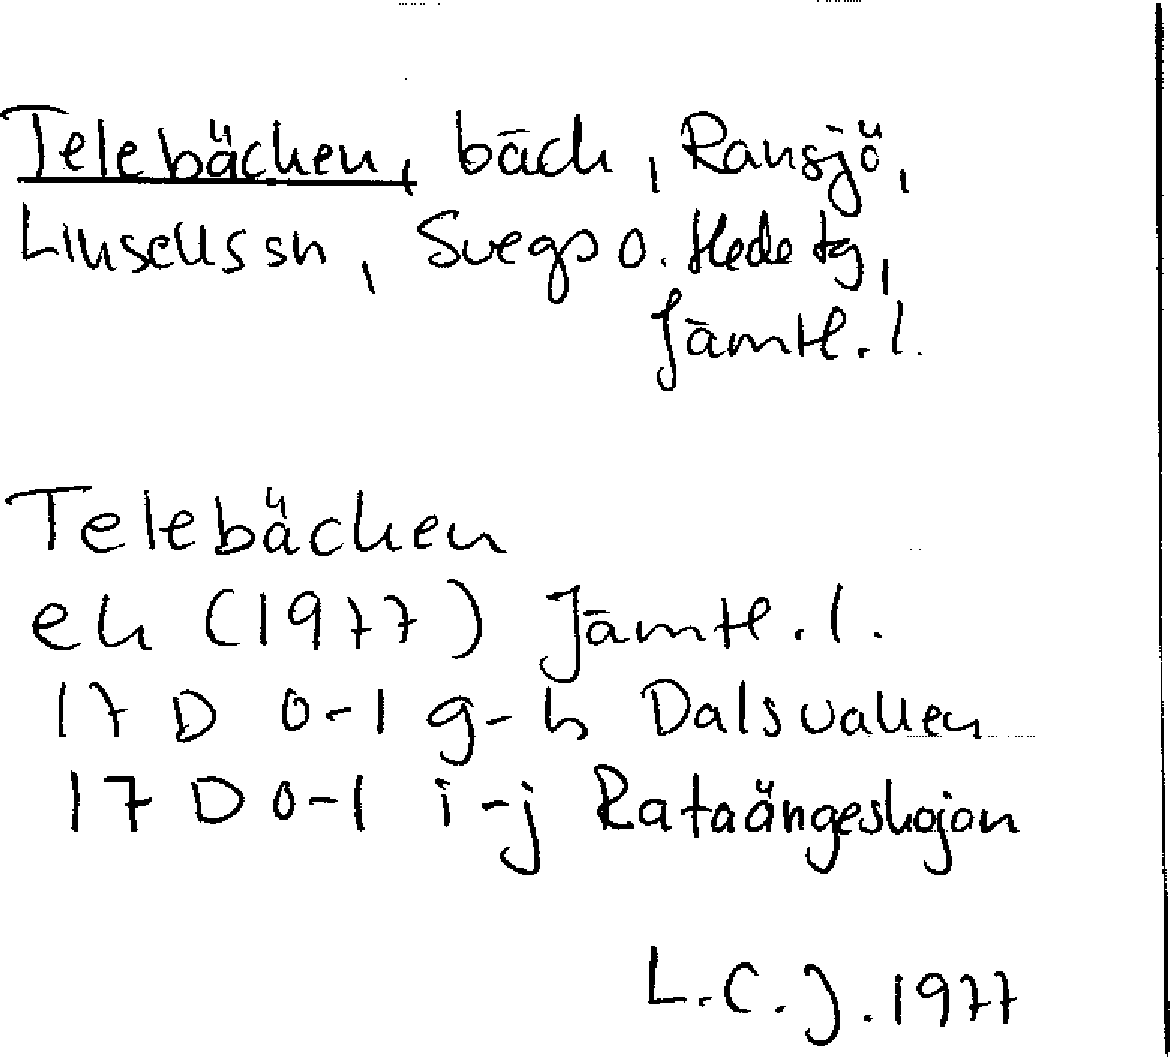 Telebäcken, bäck, Ransjö,
Linsells sn, Svegs o. Hede tg,
Jämtl. l.
Telebäcken
ek (1977) Jämtl. l.
17 D 0-1 g-h Dalsvallen
17 D 0-1 i-j Rataängeskojan
L.C.J. 1977